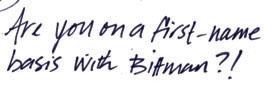 Are you on a first-name
basis with Bittman?!